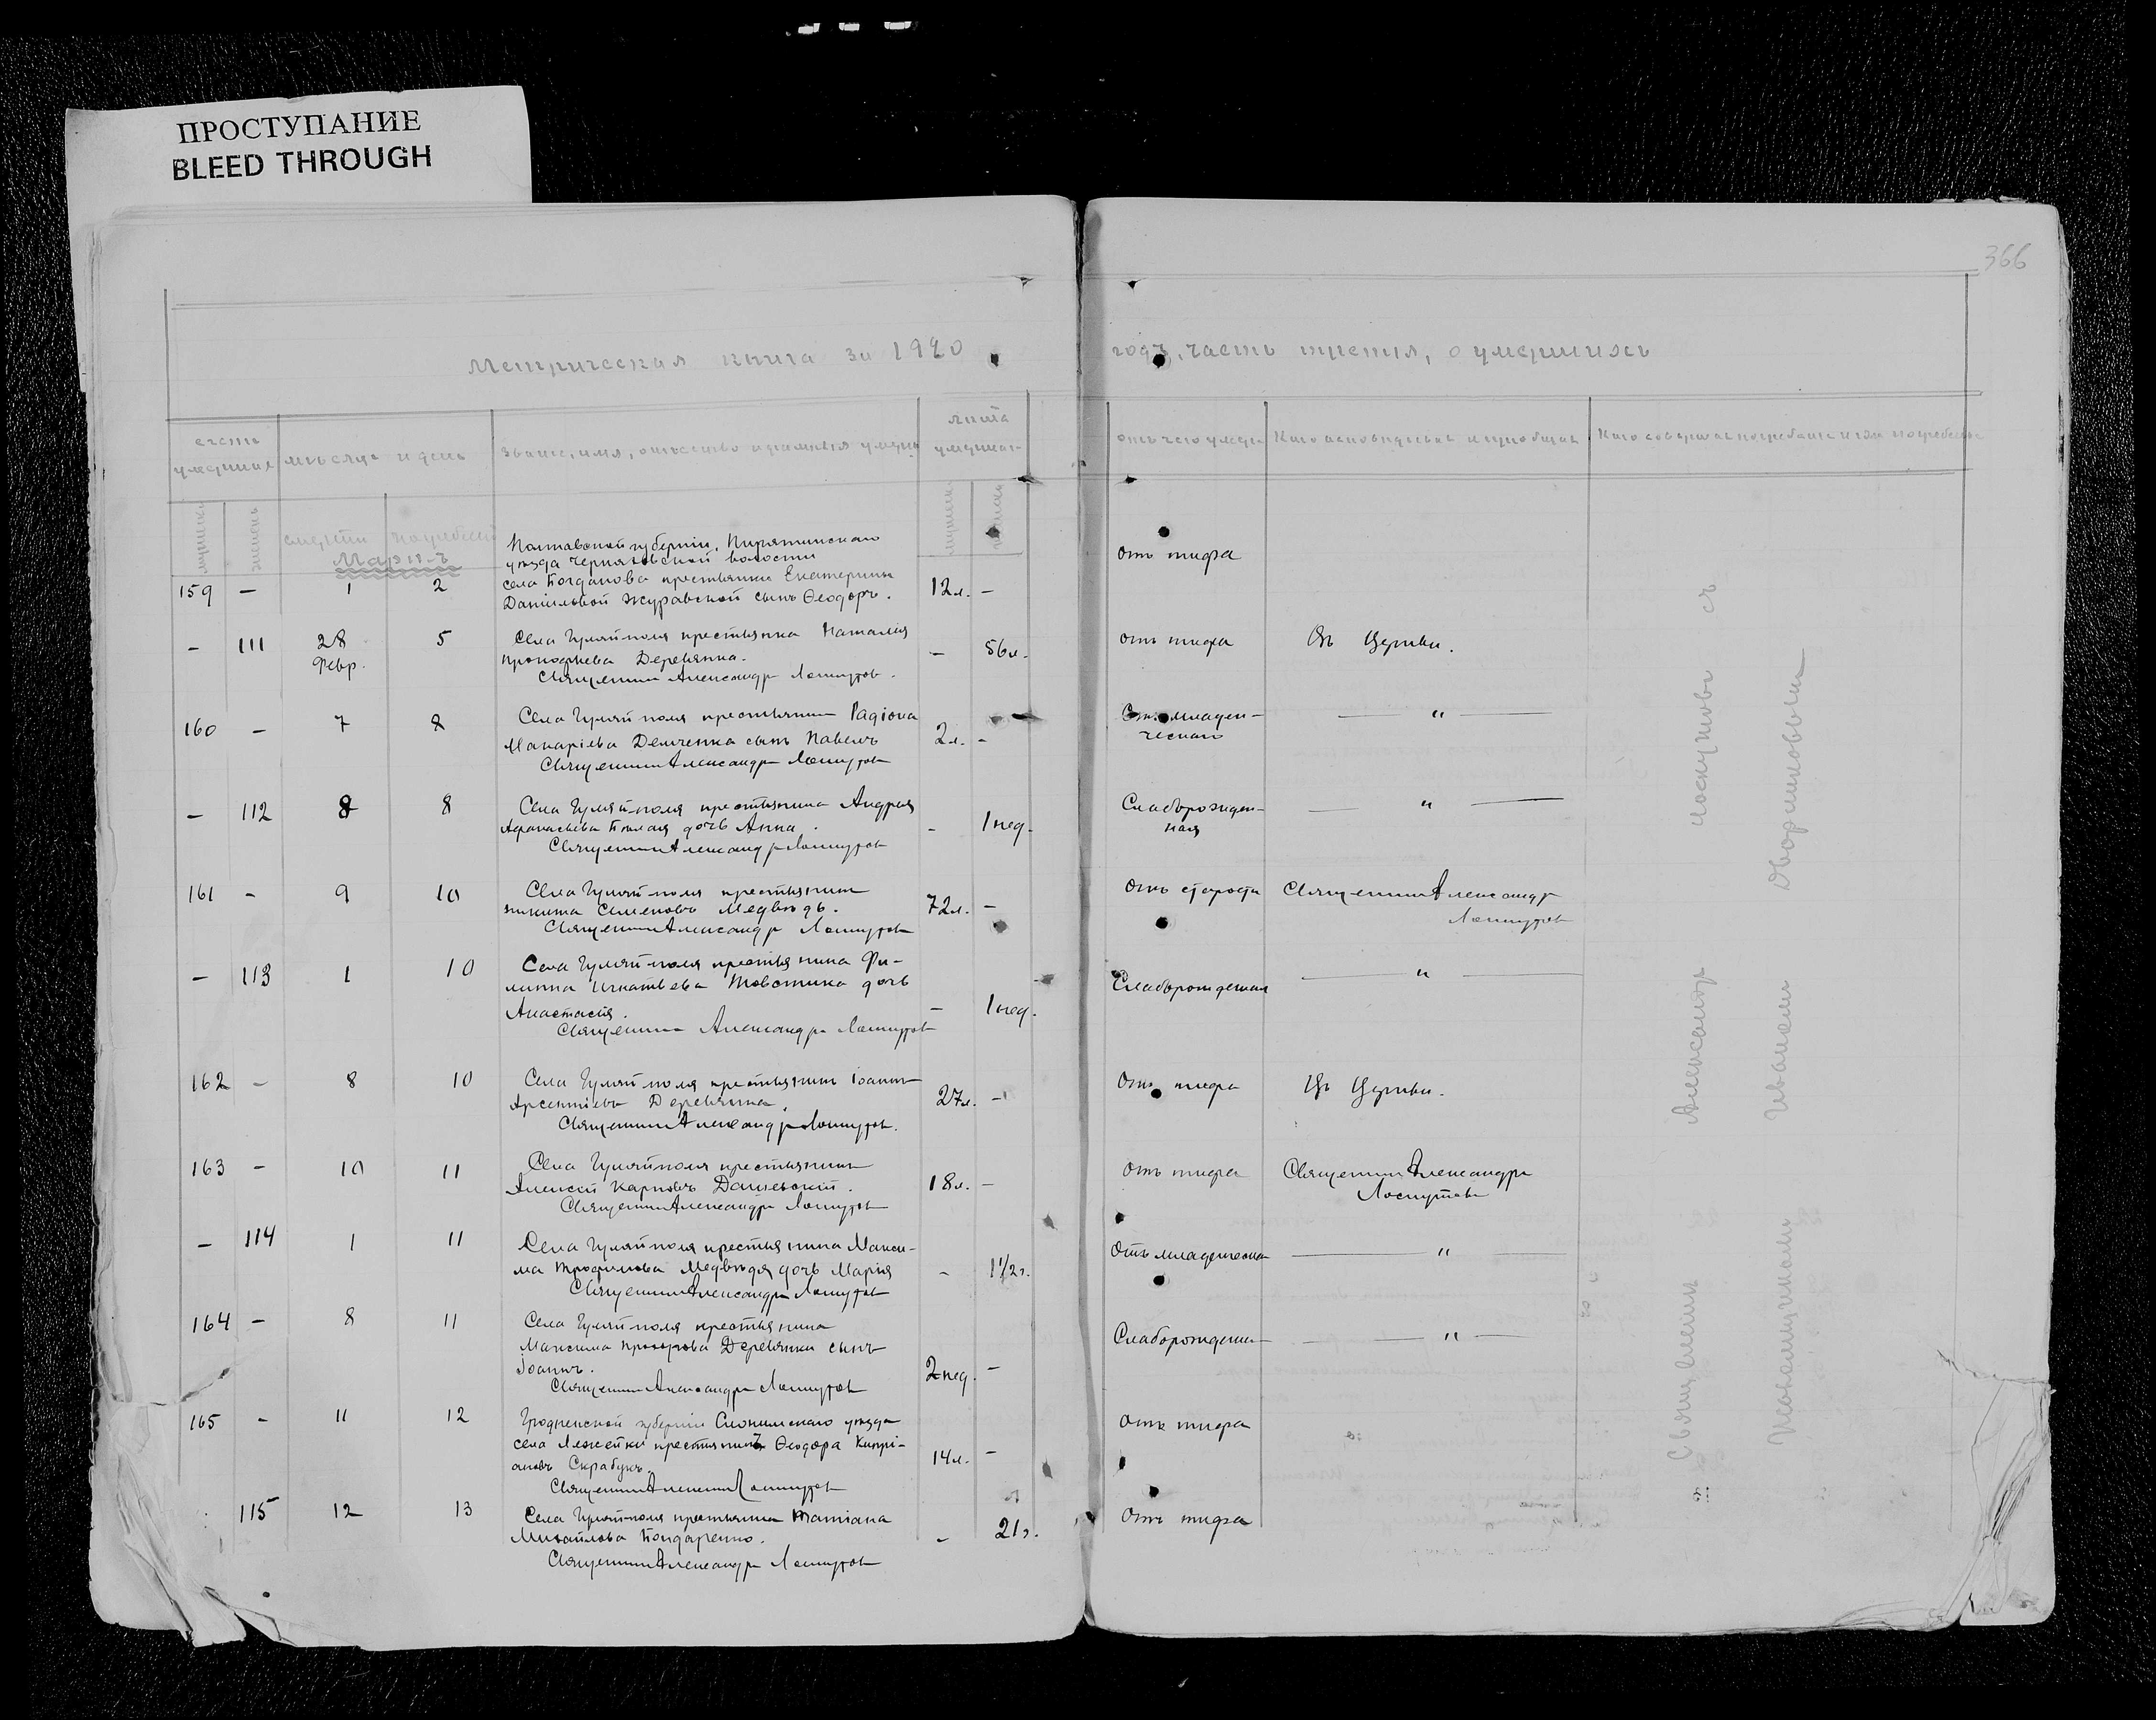 ПРОСТУПАНИЕ
BLEED THROUGH
366
Метрическая книга за 1920 годъ, часть третья, о умершихъ
счетъ умершихъ
мѣсяцъ и день
званіе, имя, отчество и фамилія умерш
лѣта умерша-
отъ чего умеръ
Кто исповѣдывалъ и пріобщалъ
Кто совершалъ погребеніе и гдѣ погребены
мужескъ
женскъ
смерти
погребенія
Мартъ
159 — 1 2
Полтавской губерніи, Пирятинскаго
уѣзда Черняховской волости
села Богданова крестьянки Екатерины
Даніиловой Журавской сынъ Ѳеодоръ. 12 л. —
отъ тифа
— 111 28 Февр. 5
Села Гуляйполя крестьянка Наталія
Прокофіева Деревянка. — 56 л.
Священникъ Александръ Лоскутовъ.
отъ тифа
Въ Церкви.
160 — 7 8
Села Гуляйполя крестьянина Радіона
Макаріева Демченка сынъ Павелъ 2 л. —
Священникъ Александръ Лоскутовъ
От младен-
ческаго
— " —
— 112 8 8
Села Гуляйполя крестьянина Андрея
Афанасьева дочь Анна. — 1 нед.
Священникъ Александръ Лоскутовъ
Слаборожден-
ная
— " —
161 — 9 10
Села Гуляйполя крестьянинъ
Никита Семеновъ Медвѣдь. 72 л. —
Священникъ Александръ Лоскутовъ
отъ старости
Священникъ Александръ
Лоскутовъ
— 113 1 10
Села Гуляйполя крестьянина Фи-
липпа Игнатьева Товстика дочь
Анастасія. — 1 нед.
Священникъ Александръ Лоскутовъ
Слаборожденная
— " —
162 — 8 10
Села Гуляйполя крестьянинъ Іоаннъ
Арсентіевъ Деревянка. 27 л. —
Священникъ Александръ Лоскутовъ.
Отъ тифа
Въ Церкви.
163 — 10 11
Села Гуляйполя крестьянинъ
Алексій Карповъ 18 л. —
Священникъ Александръ Лоскутовъ
отъ тифа
Священникъ Александръ
Лоскутовъ
— 114 1 11
Села Гуляйполя крестьянина Макси-
ма Трофимова Медвѣдя дочь Марія — 1 1/2 г.
Священникъ Александръ Лоскутовъ
Отъ младенческа
— " —
164 — 8 11
Села Гуляйполя крестьянина
Максима Прохорова Деревянки сынъ
Іоаннъ. 2 нед. —
Священникъ Александръ Лоскутовъ
Слаборожденн
— " —
165 — 11 12
Гродненской губерніи Слонимскаго уѣзда
села крестьянинъ Ѳеодора Кипрі-
ановъ Скрабукъ. 14 л. —
Священникъ Лоскутовъ
отъ тифа
115 12 13
Села Гуляйполя крестьянка Татіана
Михайлова Бондаренко. — 21 г.
Священникъ Александръ Лоскутовъ
Отъ тифа
Священникъ Александръ Лоскутовъ съ
Псаломщикомъ Иваномъ Дворниковымъ